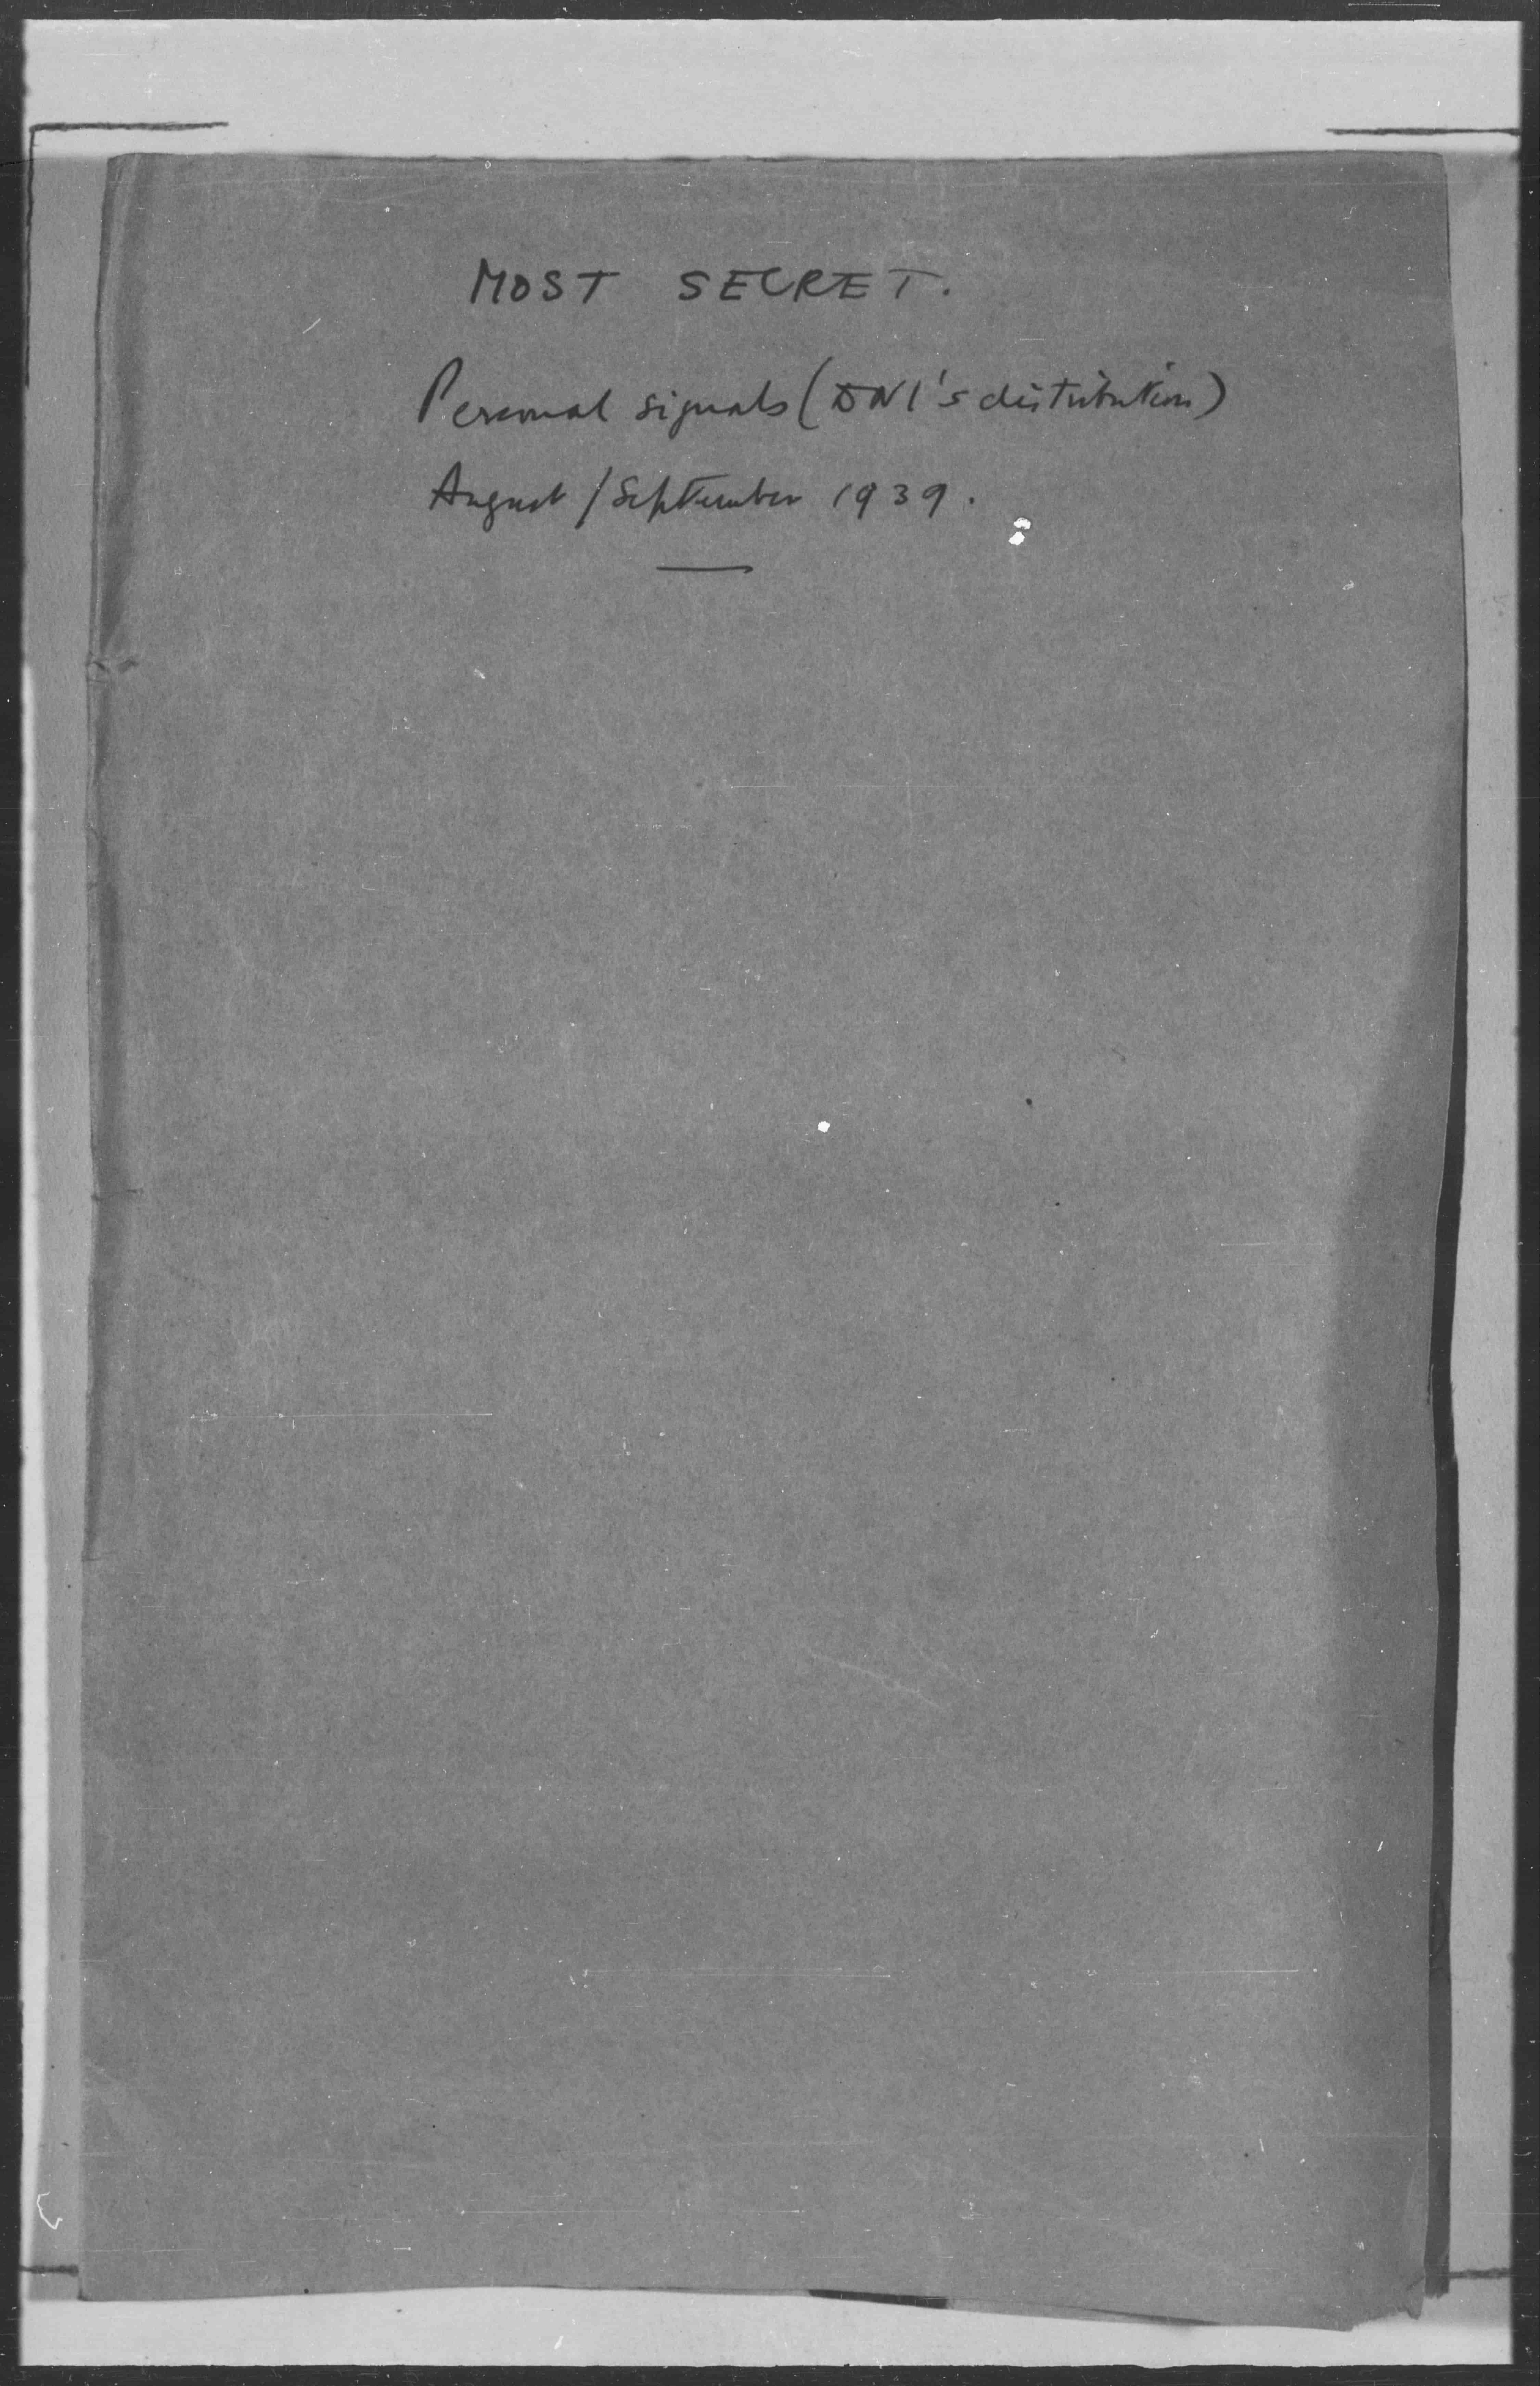 MOST SECRET.
Personal signals (DNI's distribution)
August / September 1939.